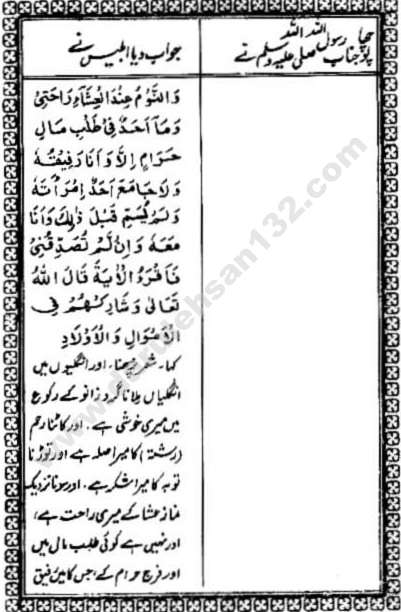 پوچھا جناب رسول اللہ صلی اللہ علیہ وسلم نے
جواب دیا ابلیس نے
وَالنَّوْمُ عِنْدَ الْعِشَاءِ رَاحَتِیْ
وَمَا اَحَدٌ فِیْ طَلَبِ مَالٍ
حَرَامٍ اِلَّا وَاَنَا رَفِیْقُهٗ
وَلَا جَامَعَ اَحَدٌ اِمْرَأَتَهٗ
وَلَمْ یُسَمِّ قَبْلَ ذٰلِكَ وَاَنَا
مَعَهٗ وَاِنْ لَمْ تُصَدِّقُنِیْ
فَاقْرَءُ الْاٰیَةَ قَالَ اللّٰهُ
تَعَالٰی وَشَارِكْهُمْ فِی
الْاَمْوَالِ وَالْاَوْلَادِ
کہا۔ شعر پڑھنا، اور انگلیوں میں
انگلیاں ملانا گرد زانو کے رکوع
میں میری خوشی ہے۔ اور کاٹنا رحم
(رشتہ) کا میرا صلہ ہے اور توڑنا
توبہ کا میرا شکر ہے۔ اور سونا نزدیک
نماز عشا کے میری راحت ہے،
اور نہیں ہے کوئی طلب مالی میں
اور فرج حرام کے، جس کا میں رفیق
www.dawatehsan132.com